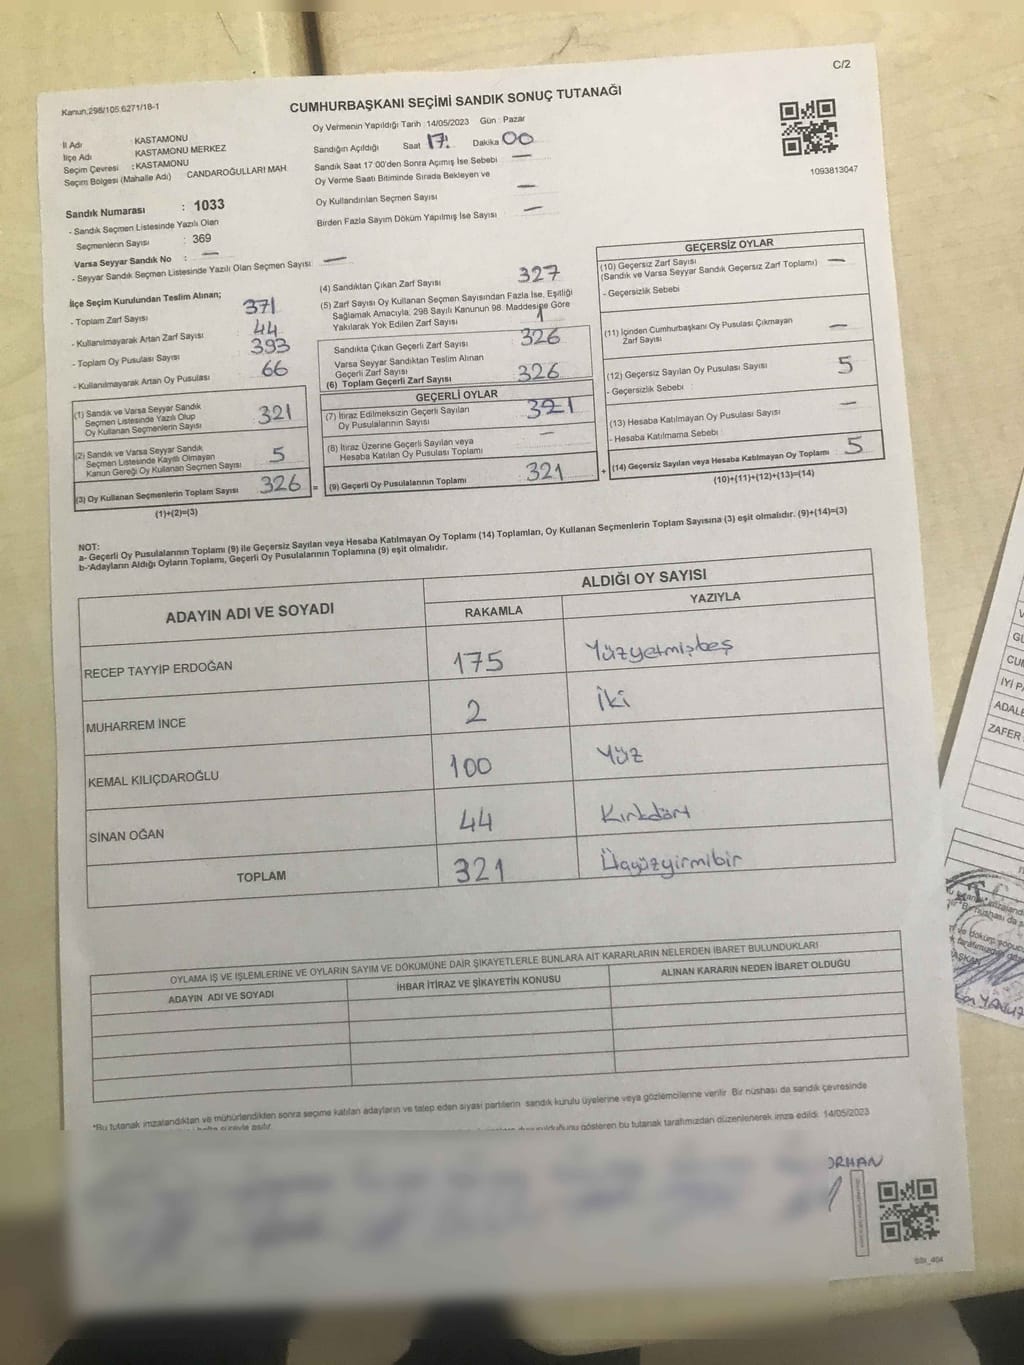 C/2
Kanun:298/105,6271/18-1
CUMHURBAŞKANI SEÇİMİ SANDIK SONUÇ TUTANAĞI
İl Adı : KASTAMONU
İlçe Adı KASTAMONU MERKEZ
Seçim Çevresi : KASTAMONU
Seçim Bölgesi (Mahalle Adı) CANDAROĞULLARI MAH
Oy Vermenin Yapıldığı Tarih :14/05/2023 Gün : Pazar
Sandığın Açıldığı Saat 17: Dakika 00
Sandık Saat 17 00'den Sonra Açımış İse Sebebi —
Oy Verme Saati Bitiminde Sırada Bekleyen ve
Oy Kullandırılan Seçmen Sayısı —
Birden Fazla Sayım Döküm Yapılmış İse Sayısı —
1093813047
Sandık Numarası : 1033
- Sandık Seçmen Listesinde Yazılı Olan
Seçmenlerin Sayısı : 369
Varsa Seyyar Sandık No : —
- Seyyar Sandık Seçmen Listesinde Yazılı Olan Seçmen Sayısı —
İlçe Seçim Kurulundan Teslim Alınan;
- Toplam Zarf Sayısı 371
- Kullanılmayarak Artan Zarf Sayısı 44
- Toplam Oy Pusulası Sayısı 393
- Kullanılmayarak Artan Oy Pusulası 66
(1) Sandık ve Varsa Seyyar Sandık
Seçmen Listesinde Yazılı Olup
Oy Kullanan Seçmenlerin Sayısı 321
(2) Sandık ve Varsa Seyyar Sandık
Seçmen Listesinde Kayıtlı Olmayan
Kanun Gereği Oy Kullanan Seçmen Sayısı 5
(3) Oy Kullanan Seçmenlerin Toplam Sayısı 326 =
(1)+(2)=(3)
(4) Sandıktan Çıkan Zarf Sayısı 327
(5) Zarf Sayısı Oy Kullanan Seçmen Sayısından Fazla İse, Eşitliği
Sağlamak Amacıyla, 298 Sayılı Kanunun 98. Maddesine Göre
Yakılarak Yok Edilen Zarf Sayısı 1
Sandıkta Çıkan Geçerli Zarf Sayısı 326
Varsa Seyyar Sandıktan Teslim Alınan
Geçerli Zarf Sayısı
(6) Toplam Geçerli Zarf Sayısı 326
GEÇERLİ OYLAR
(7) İtiraz Edilmeksizin Geçerli Sayılan
Oy Pusulalarının Sayısı 321
(8) İtiraz Üzerine Geçerli Sayılan veya
Hesaba Katılan Oy Pusulası Toplamı —
(9) Geçerli Oy Pusulalarının Toplamı 321 +
GEÇERSİZ OYLAR
(10) Geçersiz Zarf Sayısı
(Sandık ve Varsa Seyyar Sandık Geçersiz Zarf Toplamı) —
- Geçersizlik Sebebi
(11) İçinden Cumhurbaşkanı Oy Pusulası Çıkmayan
Zarf Sayısı —
(12) Geçersiz Sayılan Oy Pusulası Sayısı 5
- Geçersizlik Sebebi :
(13) Hesaba Katılmayan Oy Pusulası Sayısı —
- Hesaba Katılmama Sebebi :
(14) Geçersiz Sayılan veya Hesaba Katılmayan Oy Toplamı : 5
(10)+(11)+(12)+(13)=(14)
NOT:
a- Geçerli Oy Pusulalarının Toplamı (9) ile Geçersiz Sayılan veya Hesaba Katılmayan Oy Toplamı (14) Toplamları, Oy Kullanan Seçmenlerin Toplam Sayısına (3) eşit olmalıdır. (9)+(14)=(3)
b- Adayların Aldığı Oyların Toplamı, Geçerli Oy Pusulalarının Toplamına (9) eşit olmalıdır.
ADAYIN ADI VE SOYADI
ALDIĞI OY SAYISI
RAKAMLA YAZIYLA
RECEP TAYYIP ERDOĞAN 175 Yüzyetmişbeş
MUHARREM İNCE 2 İki
KEMAL KILIÇDAROĞLU 100 Yüz
SİNAN OĞAN 44 Kırkdört
TOPLAM 321 Üçyüzyirmibir
OYLAMA İŞ VE İŞLEMLERİNE VE OYLARIN SAYIM VE DÖKÜMÜNE DAİR ŞİKAYETLERLE BUNLARA AİT KARARLARIN NELERDEN İBARET BULUNDUKLARI
ADAYIN ADI VE SOYADI İHBAR İTİRAZ VE ŞİKAYETİN KONUSU ALINAN KARARIN NEDEN İBARET OLDUĞU
*Bu tutanak imzalandıktan ve mühürlendikten sonra seçime katılan adayların ve talep eden siyasi partilerin sandık kurulu üyelerine veya gözlemcilerine verilir. Bir nüshası da sandık çevresinde
gösteren bu tutanak tarafımızdan düzenlenerek imza edildi. 14/05/2023
ORHAN
İYİ P
ADALE
ZAFER